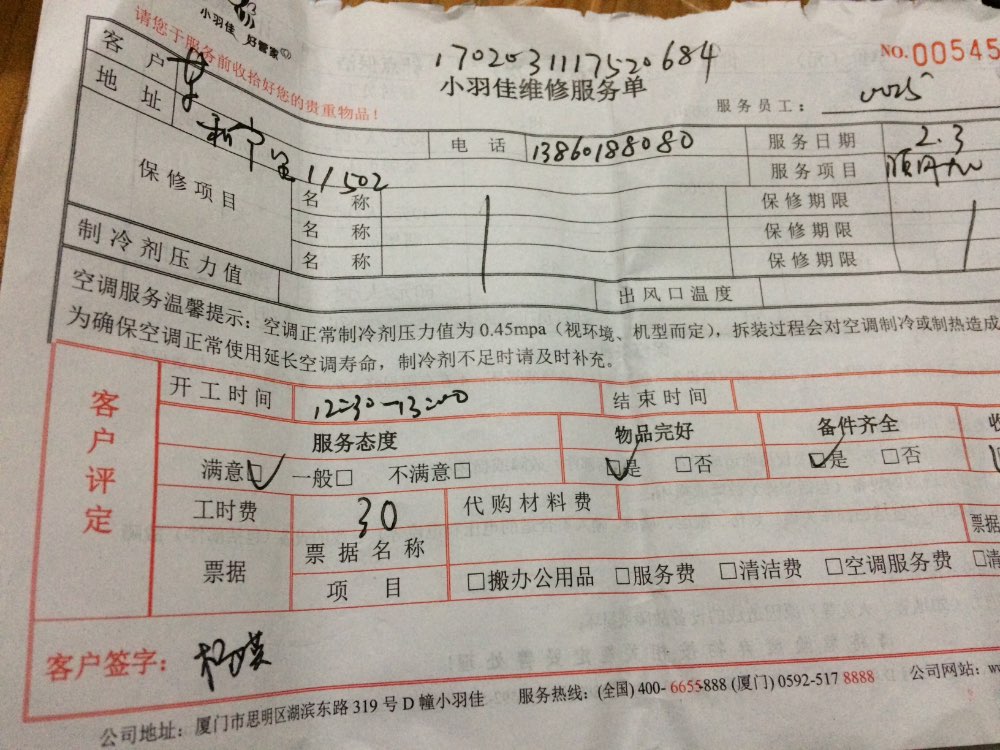 小羽佳 好管家
请您于服务前收拾好您的贵重物品！
17020311117520684
NO. 00545
小羽佳维修服务单
服务员工：
客户
地址 11502
电话 13860188080 服务日期 2.3
服务项目
保修项目 名称 保修期限
名称 保修期限
名称 保修期限
制冷剂压力值 出风口温度
空调服务温馨提示：空调正常制冷剂压力值为 0.45mpa（视环境、机型而定），拆装过程会对空调制冷或制热造成
为确保空调正常使用延长空调寿命，制冷剂不足时请及时补充。
客户评定
开工时间 12=30-13=00 结束时间
服务态度 物品完好 备件齐全
满意□ 一般□ 不满意□ □是 □否 □是 □否
工时费 30 代购材料费
票据 票据名称 票据
项目 □搬办公用品 □服务费 □清洁费 □空调服务费 □清
客户签字：
公司地址：厦门市思明区湖滨东路 319 号 D 幢小羽佳 服务热线：(全国) 400- 6655-888 (厦门) 0592-517 8888 公司网站：